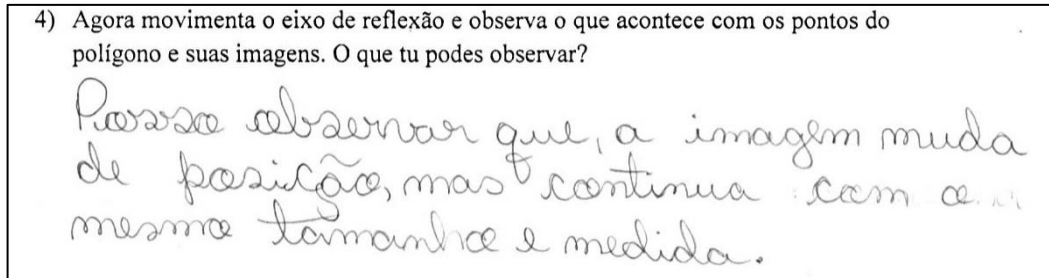 4) Agora movimenta o eixo de reflexão e observa o que acontece com os pontos do
polígono e suas imagens. O que tu podes observar?
Posso observar que, a imagem muda
de posição, mas continua com o
mesmo tamanho e medida.